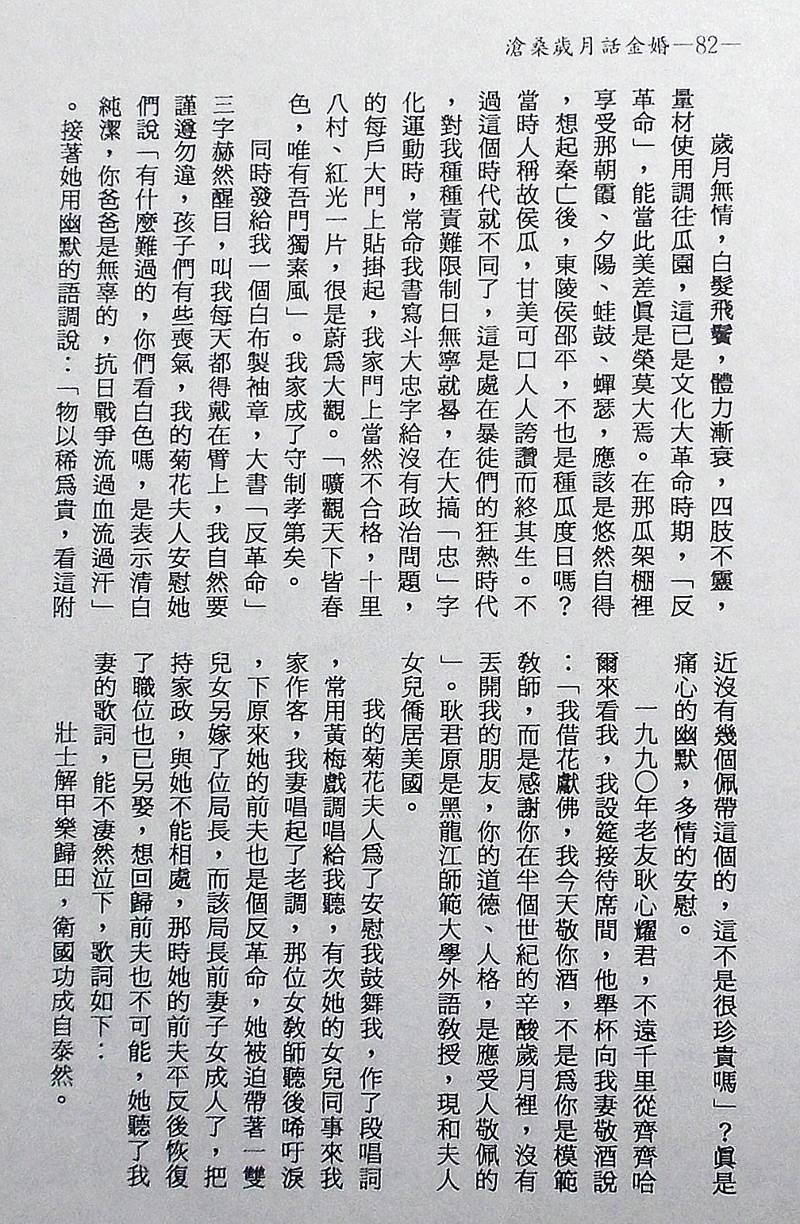 滄桑歲月話金婚—82—
歲月無情，白髮飛鬢，體力漸衰，四肢不靈，
量材使用調往瓜園，這已是文化大革命時期，「反
革命」，能當此美差眞是榮莫大焉。在那瓜架棚裡
享受那朝霞、夕陽、蛙鼓、蟬瑟，應該是悠然自得
，想起秦亡後，東陵侯邵平，不也是種瓜度日嗎？
當時人稱故侯瓜，甘美可口人人誇讚而終其生。不
過這個時代就不同了，這是處在暴徒們的狂熱時代
，對我種種責難限制日無寧就晷，在大搞「忠」字
化運動時，常命我書寫斗大忠字給沒有政治問題，
的每戶大門上貼掛起，我家門上當然不合格，十里
八村、紅光一片，很是蔚爲大觀。「曠觀天下皆春
色，唯有吾門獨素風」。我家成了守制孝第矣。
同時發給我一個白布製袖章，大書「反革命」
三字赫然醒目，叫我每天都得戴在臂上，我自然要
謹遵勿違，孩子們有些喪氣，我的菊花夫人安慰她
們說「有什麼難過的，你們看白色嗎，是表示清白
純潔，你爸爸是無辜的，抗日戰爭流過血流過汗」
。接著她用幽默的語調說：「物以稀爲貴，看這附
近沒有幾個佩帶這個的，這不是很珍貴嗎」？眞是
痛心的幽默，多情的安慰。
一九九〇年老友耿心耀君，不遠千里從齊齊哈
爾來看我，我設筵接待席間，他舉杯向我妻敬酒說
：「我借花獻佛，我今天敬你酒，不是爲你是模範
教師，而是感謝你在半個世紀的辛酸歲月裡，沒有
丟開我的朋友，你的道德、人格，是應受人敬佩的
」。耿君原是黑龍江師範大學外語教授，現和夫人
女兒僑居美國。
我的菊花夫人爲了安慰我鼓舞我，作了段唱詞
，常用黃梅戲調唱給我聽，有次她的女兒同事來我
家作客，我妻唱起了老調，那位女教師聽後唏吁淚
，下原來她的前夫也是個反革命，她被迫帶著一雙
兒女另嫁了位局長，而該局長前妻子女成人了，把
持家政，與她不能相處，那時她的前夫平反後恢復
了職位也已另娶，想回歸前夫也不可能，她聽了我
妻的歌詞，能不淒然泣下，歌詞如下：
壯士解甲樂歸田，衛國功成自泰然。